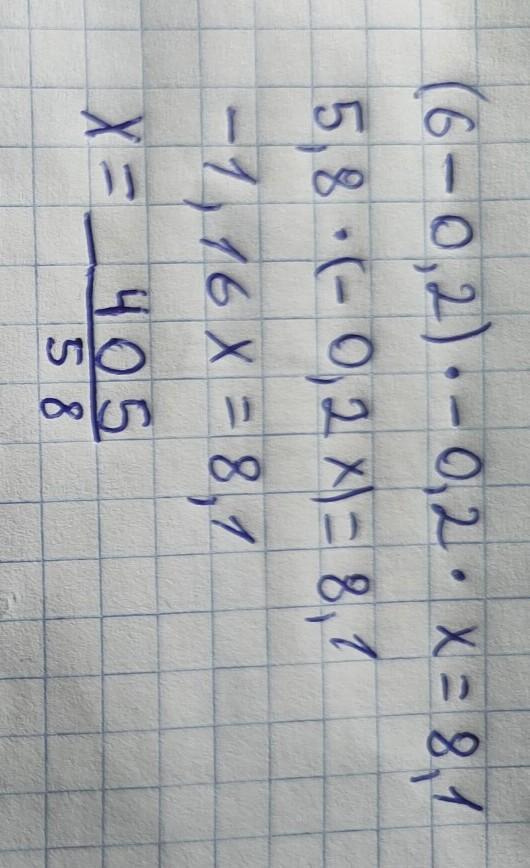 (6 - 0,2) · - 0,2 · x = 8,1
5,8 · (- 0,2 x) = 8,1
- 1,16 x = 8,1
x = - 405/58